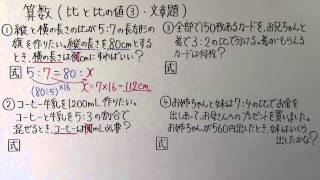 算数(比と比の値③・文章題)
①縦と横の長さの比が5:7の長方形の
旗を作りたい。縦の長さを80cmとする
とき、横の長さは何cm?
式
5:7=80:x
(80÷5) ×16
x=7×16=112cm
②コーヒー牛乳を1200mL作りたい。
コーヒーと牛乳を5:3の割合で
混ぜるとき、コーヒーは何mL必要?
式
③全部で150枚あるカードを、お兄ちゃんと
弟で3:2の比で分ける。弟がもらえる
カードは何枚?
式
④お姉ちゃんと妹は7:4の比でお金を
出しあって、お母さんへのプレゼントを買いました。
お姉ちゃんが560円出したとき、妹はいくら
出したかな?
式